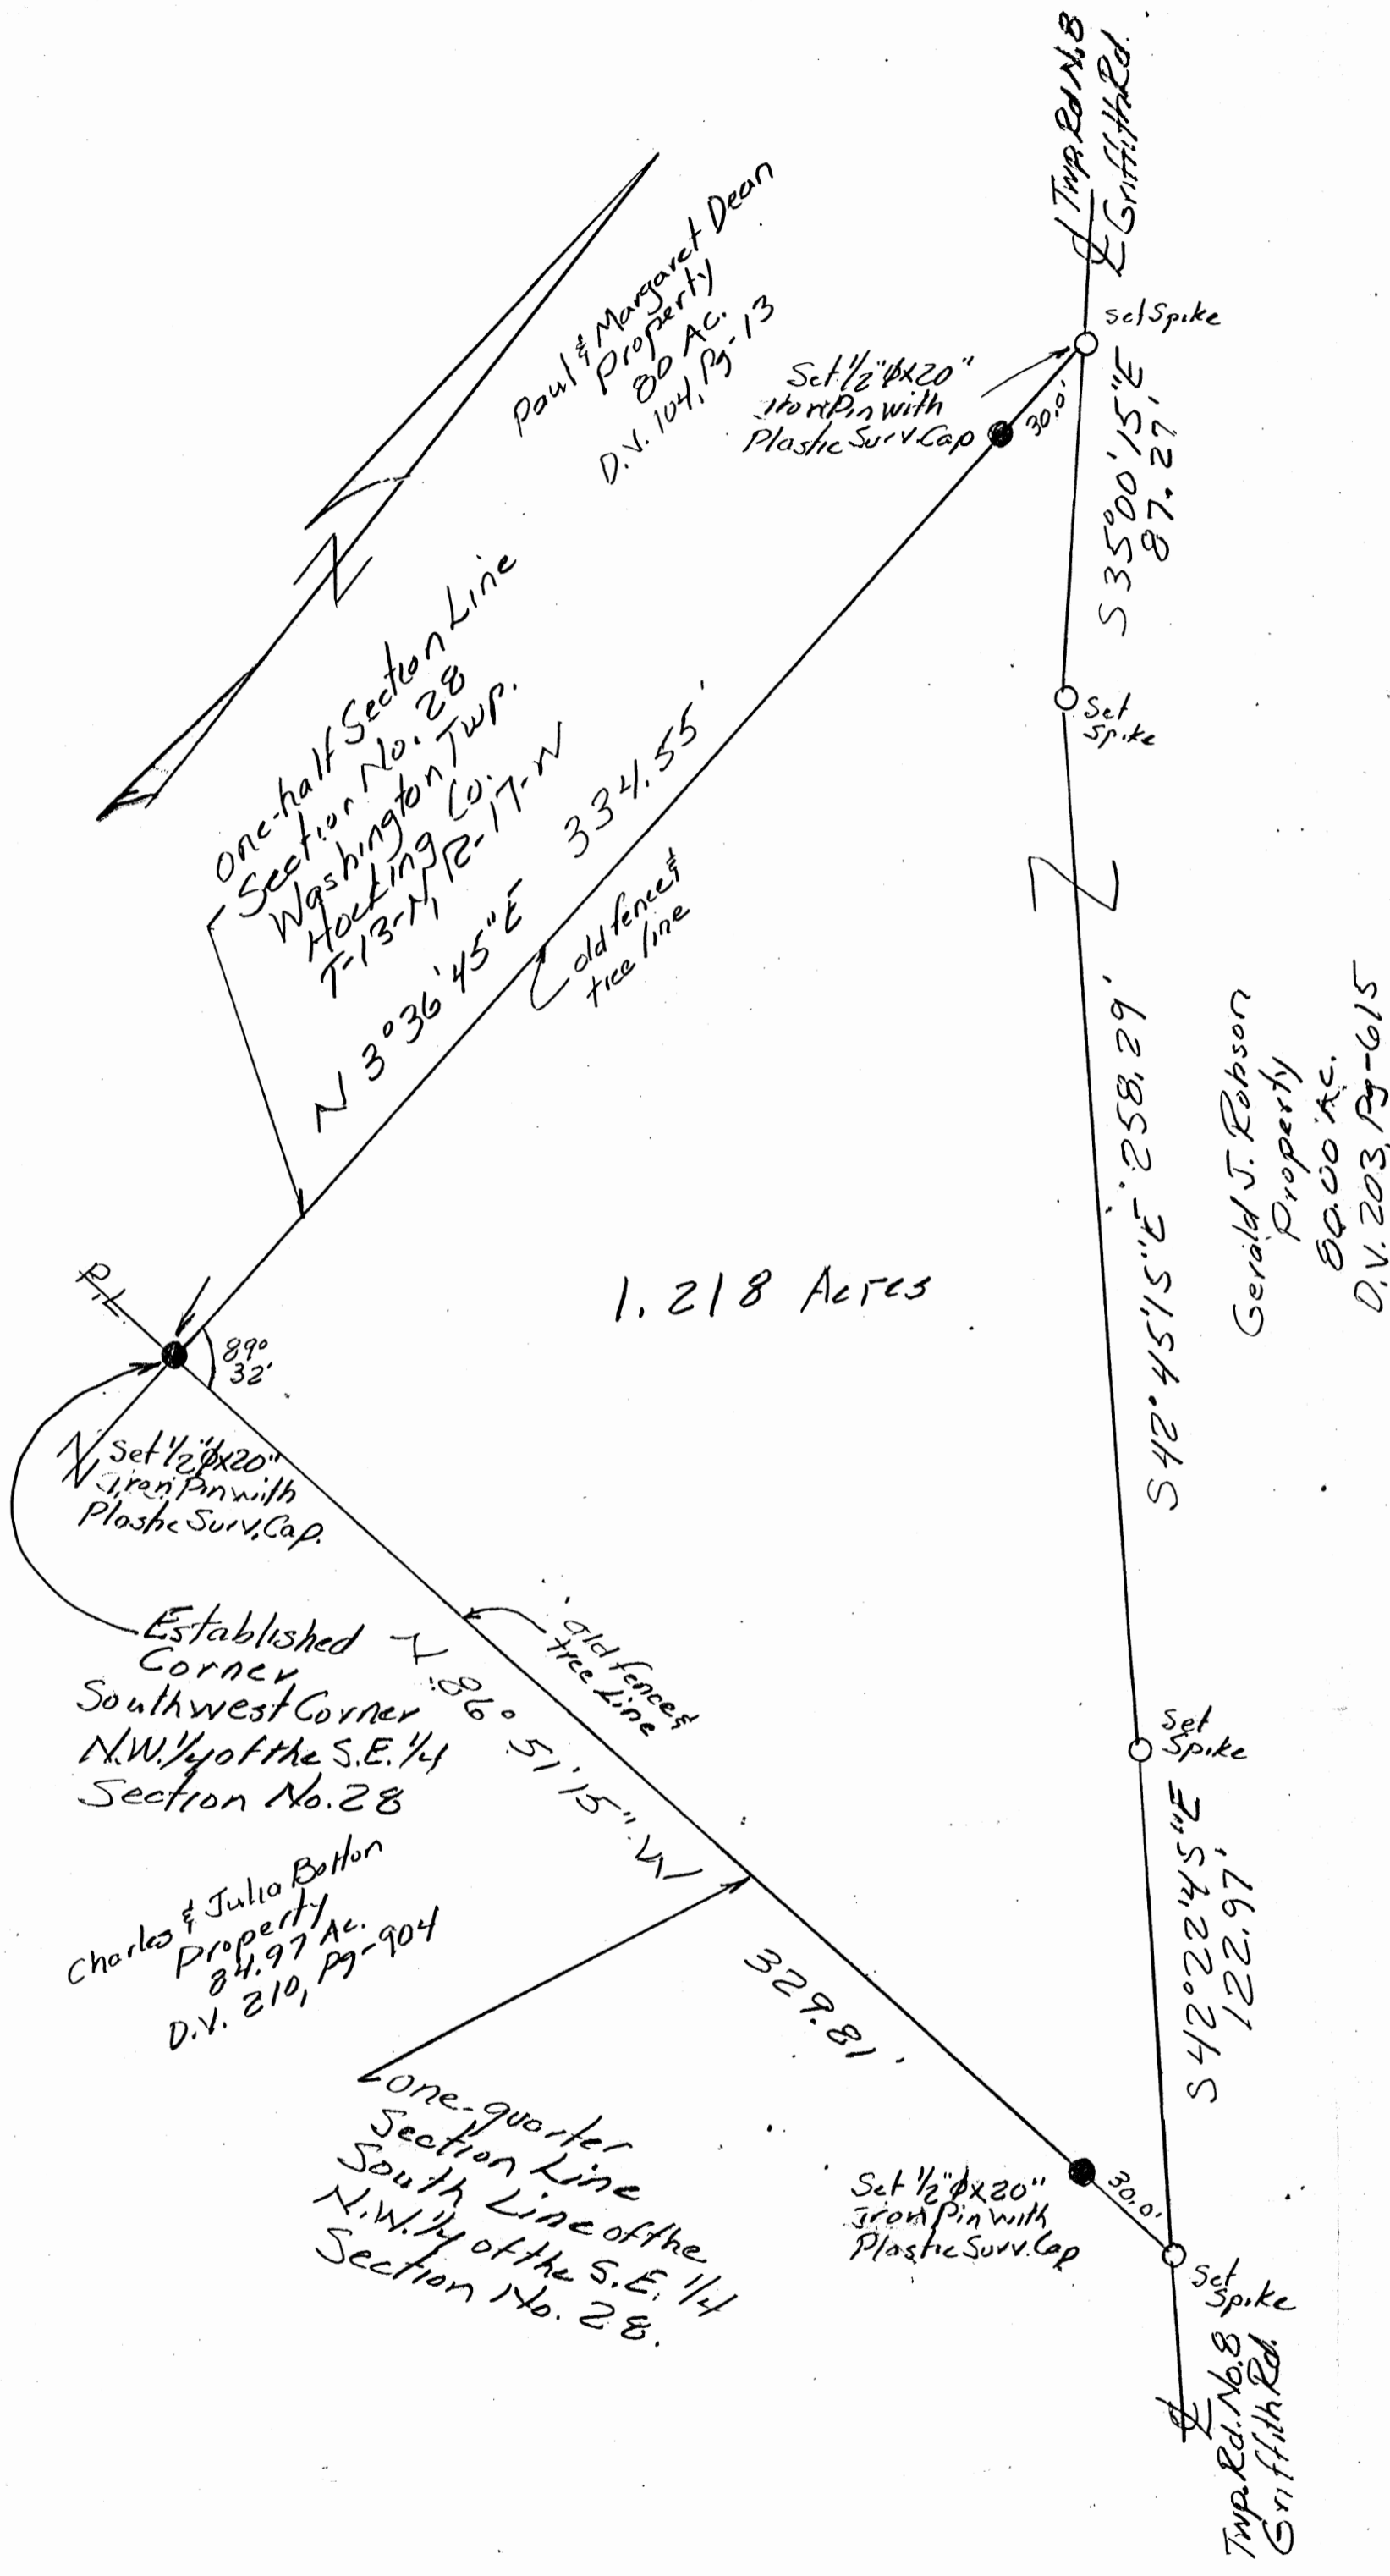 Twp. Rd. No. 8
℄ Griffith Rd.
Paul & Margaret Dean
Property
80 Ac.
D.V. 104, Pg-13
Set Spike
Set 1/2"φx20"
Iron Pin with
Plastic Surv. Cap
30.0'
S 35°00'15"E
87.27'
N
One-half Section Line
Section No. 28
Washington Twp.
Hocking Co.
T-13-N, R-17-W
N 3°36'45"E 334.55'
old fence &
tree line
Set
Spike
S 42°45'15"E 258.29'
Gerald J. Robson
Property
80.00 Ac.
D.V. 203, Pg-615
1.218 Acres
P.L.
89°
32'
Set 1/2"φx20"
Iron Pin with
Plastic Surv. Cap.
Established
Corner
Southwest Corner
N.W. 1/4 of the S.E. 1/4
Section No. 28
N. 86° 51' 15" W
329.81'
old fence &
tree line
Charles & Julia Botton
Property
84.97 Ac.
D.V. 210, Pg-904
One-quarter
Section Line
South Line of the
N.W. 1/4 of the S.E. 1/4
Section No. 28.
Set
Spike
S 42°22'45"E
122.97'
Set 1/2"φx20"
Iron Pin with
Plastic Surv. Cap
30.0'
Set
Spike
℄
Twp. Rd. No. 8
Griffith Rd.